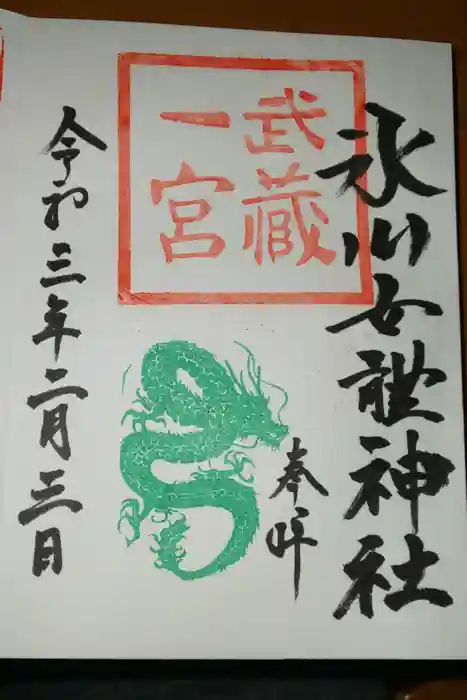 氷川女體神社
奉拝
武蔵
一宮
令和三年二月三日